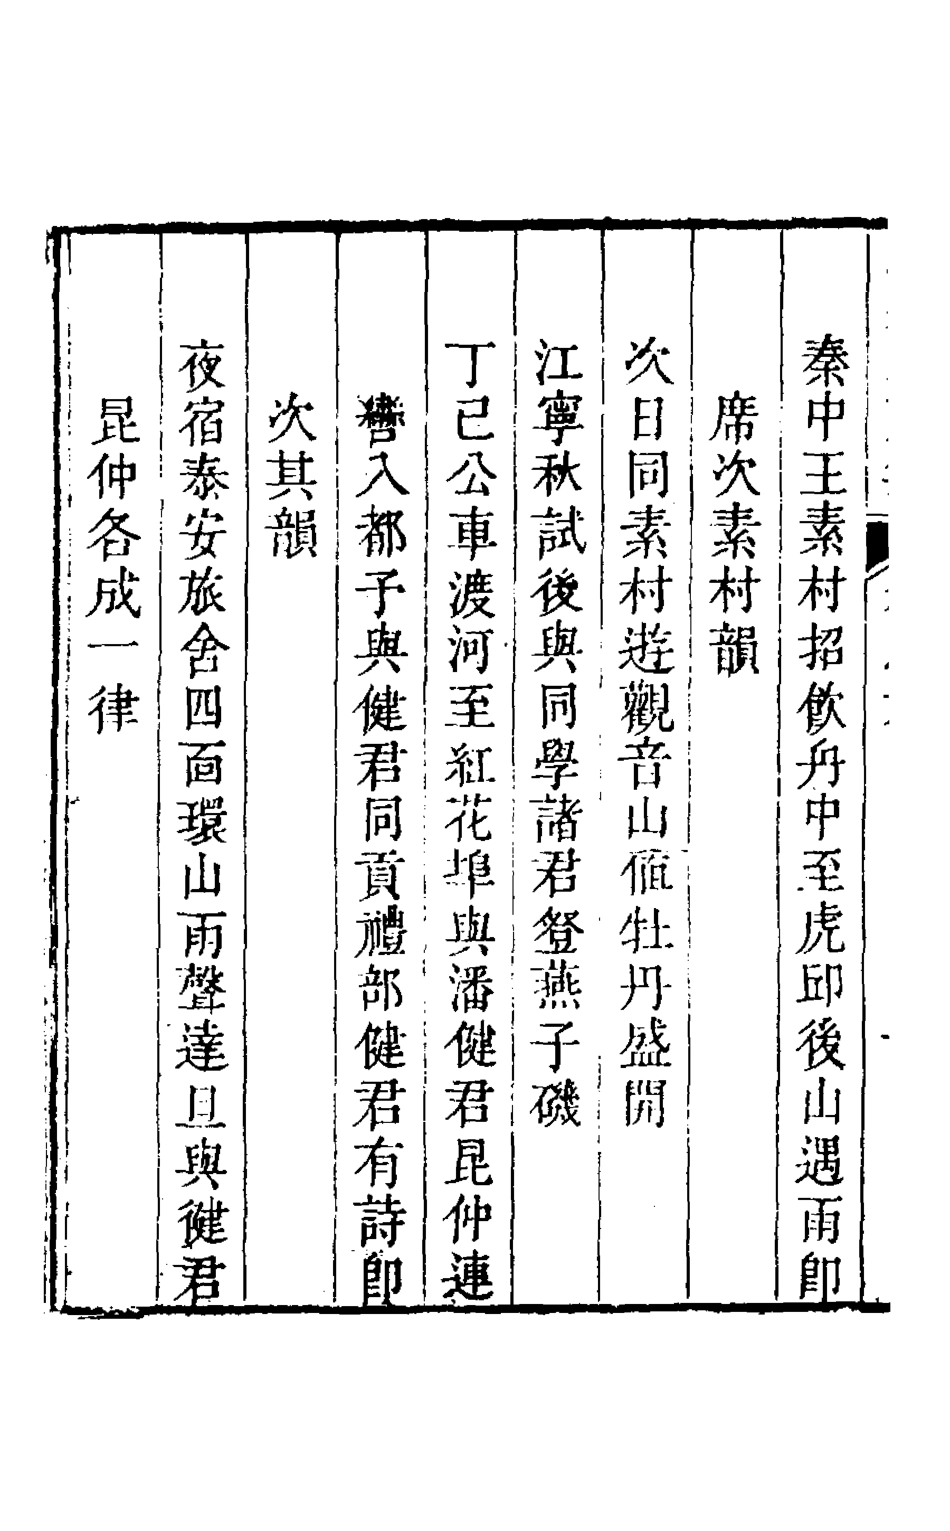 秦中王素村招飲舟中至虎邱後山遇雨卽
席次素村韻
次日同素村遊觀音山値牡丹盛開
江寧秋試後與同學諸君登燕子磯
丁巳公車渡河至紅花埠與潘健君昆仲連
轡入都予與健君同貢禮部健君有詩卽
次其韻
夜宿泰安旅舍四面環山雨聲達旦與健君
昆仲各成一律